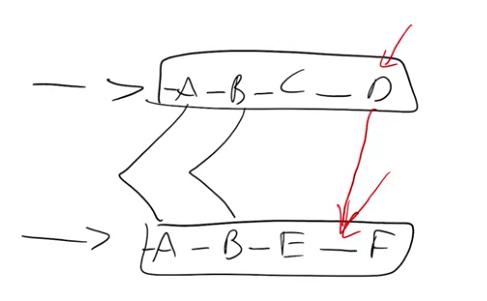 -A-B-C-D
-A-B-E-F